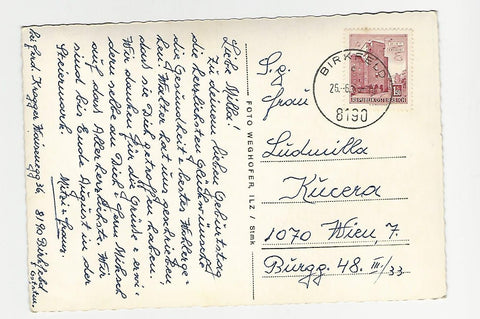 Liebe Milli!
Zu deinem lieben Geburtstag
die herzlichsten Glückwünsche
die Gesundheit u. bestes Wohlerge-
hen. Walter hat uns geschrieben,
dass sie Dich getroffen haben.
Wir danken für die Grüße u. erwi-
dern selbe an Dich u. Herrn Michael
auf das Allerherzlichste. Wir
sind bis Ende August in der
Steiermark.
Mitzi u. Franz.
bei Ferd. Krogger Weinegg 36, 8190 Birkfeld
Oststmk.
FOTO WEGHOFER, ILZ / Stmk
BIRKFELD
26.-6.
8190
REPUBLIK ÖSTERREICH
S.g.
Frau
Ludmilla
Kucera
1070 Wien, 7.
Burgg. 48. III/33